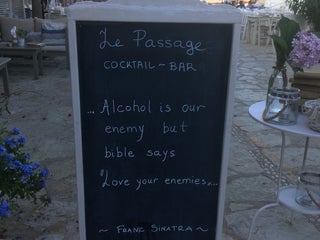 Le Passage
COCKTAIL - BAR
... Alcohol is our
enemy but
bible says
"Love your enemies...
~ FRANC SINATRA ~